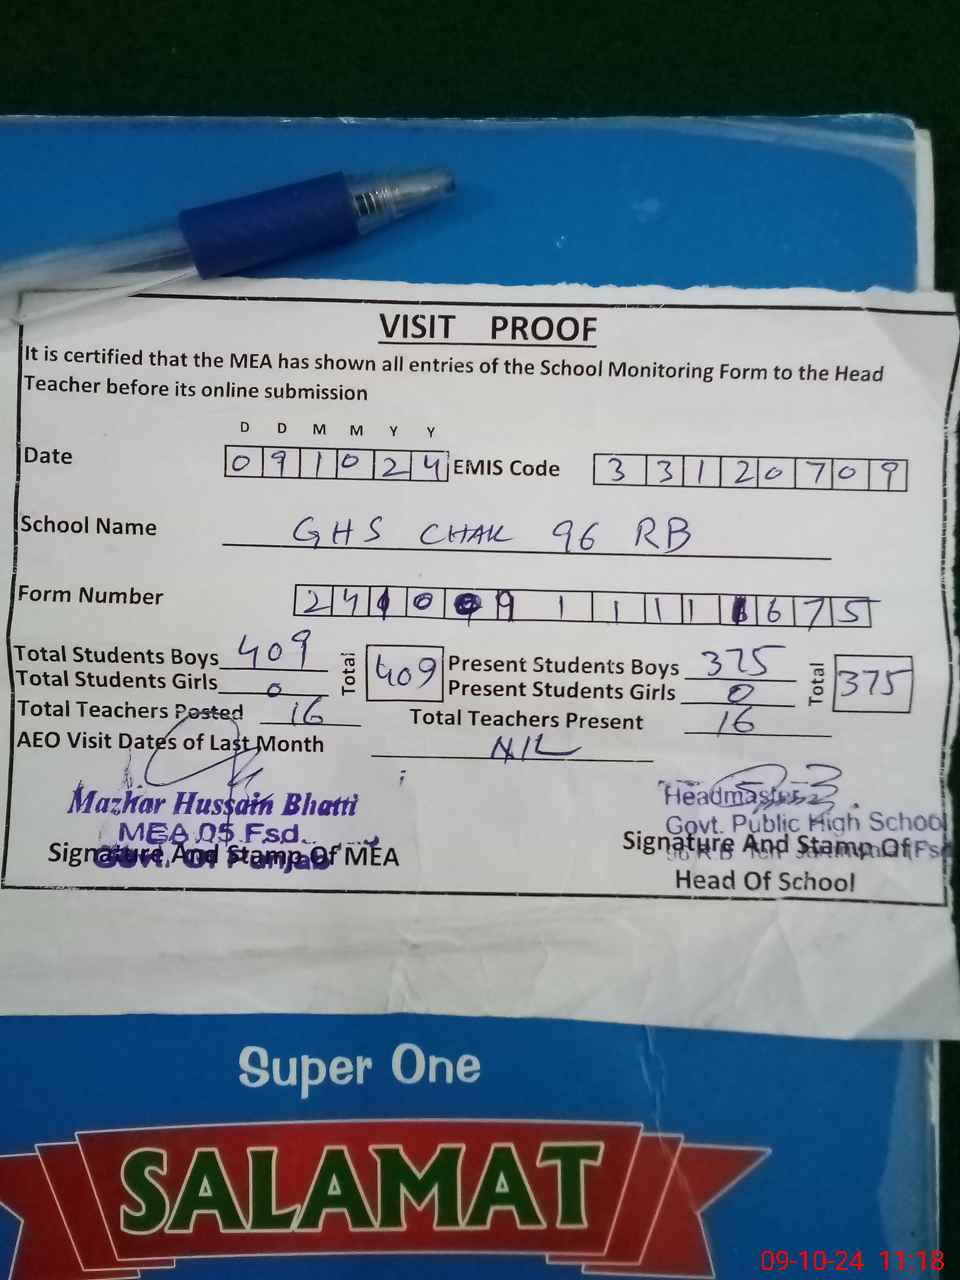 VISIT PROOF
It is certified that the MEA has shown all entries of the School Monitoring Form to the Head
Teacher before its online submission
D D M M Y Y
Date 0 9 1 0 2 4 EMIS Code 3 3 1 2 0 7 0 9
School Name GHS CHAK 96 RB
Form Number 2 4 1 0 0 9 1 1 1 1 6 7 5
Total Students Boys 409 Total 409 Present Students Boys 375 Total 375
Total Students Girls 0 Present Students Girls 0
Total Teachers Posted 16 Total Teachers Present 16
AEO Visit Dates of Last Month NIL
Mazhar Hussain Bhatti
MEA 05 Fsd.
Govt. Of Punjab
Signature And Stamp Of MEA
Headmaster
Govt. Public High School
96 R.B Fsd
Signature And Stamp Of
Head Of School
Super One
SALAMAT
09-10-24 11:18